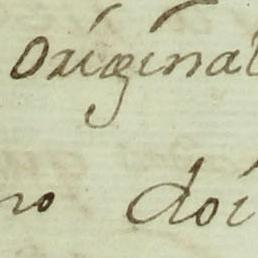 Original
no doi